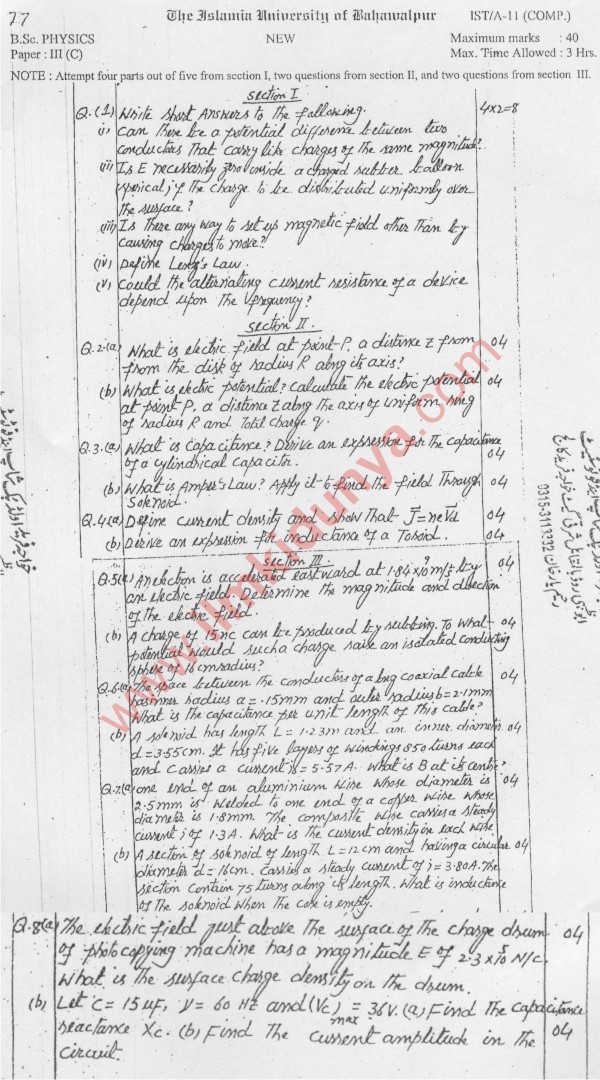 77
The Islamia University of Bahawalpur
IST/A-11 (COMP.)
B.Sc. PHYSICS
NEW
Maximum marks : 40
Paper : III (C)
Max. Time Allowed : 3 Hrs.
NOTE : Attempt four parts out of five from section I, two questions from section II, and two questions from section III.
Section I
Q.(1) Write short Answers to the following. 4x2=8
(i) Can there be a potential difference between two
conductors that carry like charges of the same magnitude?
(ii) Is E necessarily zero inside a charged rubber balloon
sperical; if the charge to be distributed uniformly over
the surface?
(iii) Is there any way to set up magnetic field other than by
causing charges to move?
(iv) Define Lenz's Law.
(v) Could the alternating current resistance of a device
depend upon the frequency?
Section II.
Q.2.(a) What is electric field at point P, a distance z from 04
from the disk of radius R along its axis?
(b) What is electric potential? Calculate the electric potential 04
at point P, a distance z along the axis of uniform ring
of radius R and Total charge q.
Q.3.(a) What is Capacitance? Derive an expression for the capacitance
of a cylindrical capacitor. 04
(b) What is Amper's Law? Apply it to find the field Through 04
Solenoid.
Q.4.(a) Define current density and show that J=neVd 04
(b) Derive an expression for inductance of a Toroid. 04
Section III.
Q.5(a) An electron is accelerated eastward at 1.84x10 m/s² by 04
an electric field. Determine the magnitude and direction
of the electric field.
(b) A charge of 15nc can be produced by rubbing. To what 04
potential would such a charge raise an isolated conducting
sphere of 16cm radius?
Q.6(a) The space between the conductors of a long coaxial cable 04
has inner radius a = .15mm and outer radius b = 2.1mm
What is the capacitance per unit length of this cable?
(b) A solenoid has length L = 1.23m and an inner diameter 04
d = 3.55cm. It has five layers of windings 850 turns each
and carries a current i = 5.57A. What is B at its centre?
Q.7(a) one end of an aluminium wire whose diameter is 04
2.5mm is welded to one end of a copper wire whose
diameter is 1.8mm. The composite wire carries a steady
current i of 1.3A. What is the current density in each wire.
(b) A section of solenoid of length L=12cm and having a circular 04
diameter d = 16cm. Carries a steady current of i = 3.80A. The
section contain 75 turns along its length. What is inductance
of the solenoid when the core is empty.
Q.8(a) The electric field just above the surface of the charge drum 04
of photocopying machine has a magnitude E of 2.3x10⁵ N/c.
What is the surface charge density on the drum.
(b) Let C = 15µF, ν = 60 Hz and (Vc)max = 36v. (a) Find the capacitance
reactance Xc. (b) Find the current amplitude in the 04
circuit.
www.ilmkidunya.com
0315-3113332